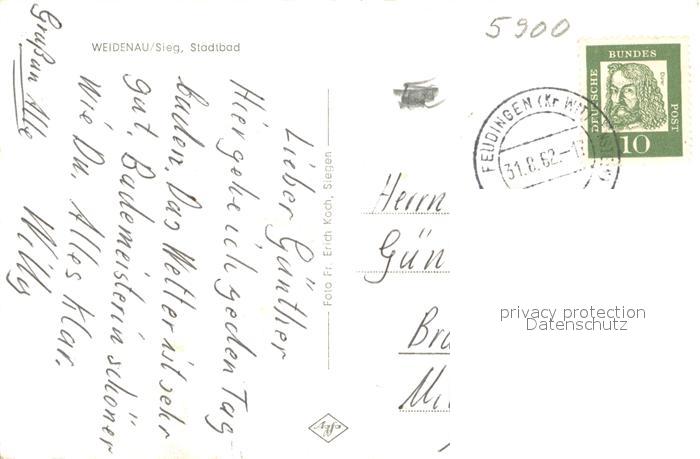 WEIDENAU/Sieg, Stadtbad
Lieber Günther
Hier gehe ich jeden Tag
baden. Das Wetter ist sehr
gut. Bademeisterin schöner
wie Du. Alles Klar.
Willy
Gruß an Alle
Foto Fr. Erich Koch, Siegen
5900
FEUDINGEN (Kr
31.8.62.-17
DEUTSCHE
BUNDES
POST
Dürer
10
Herrn
Gün
Bra
privacy protection
Datenschutz